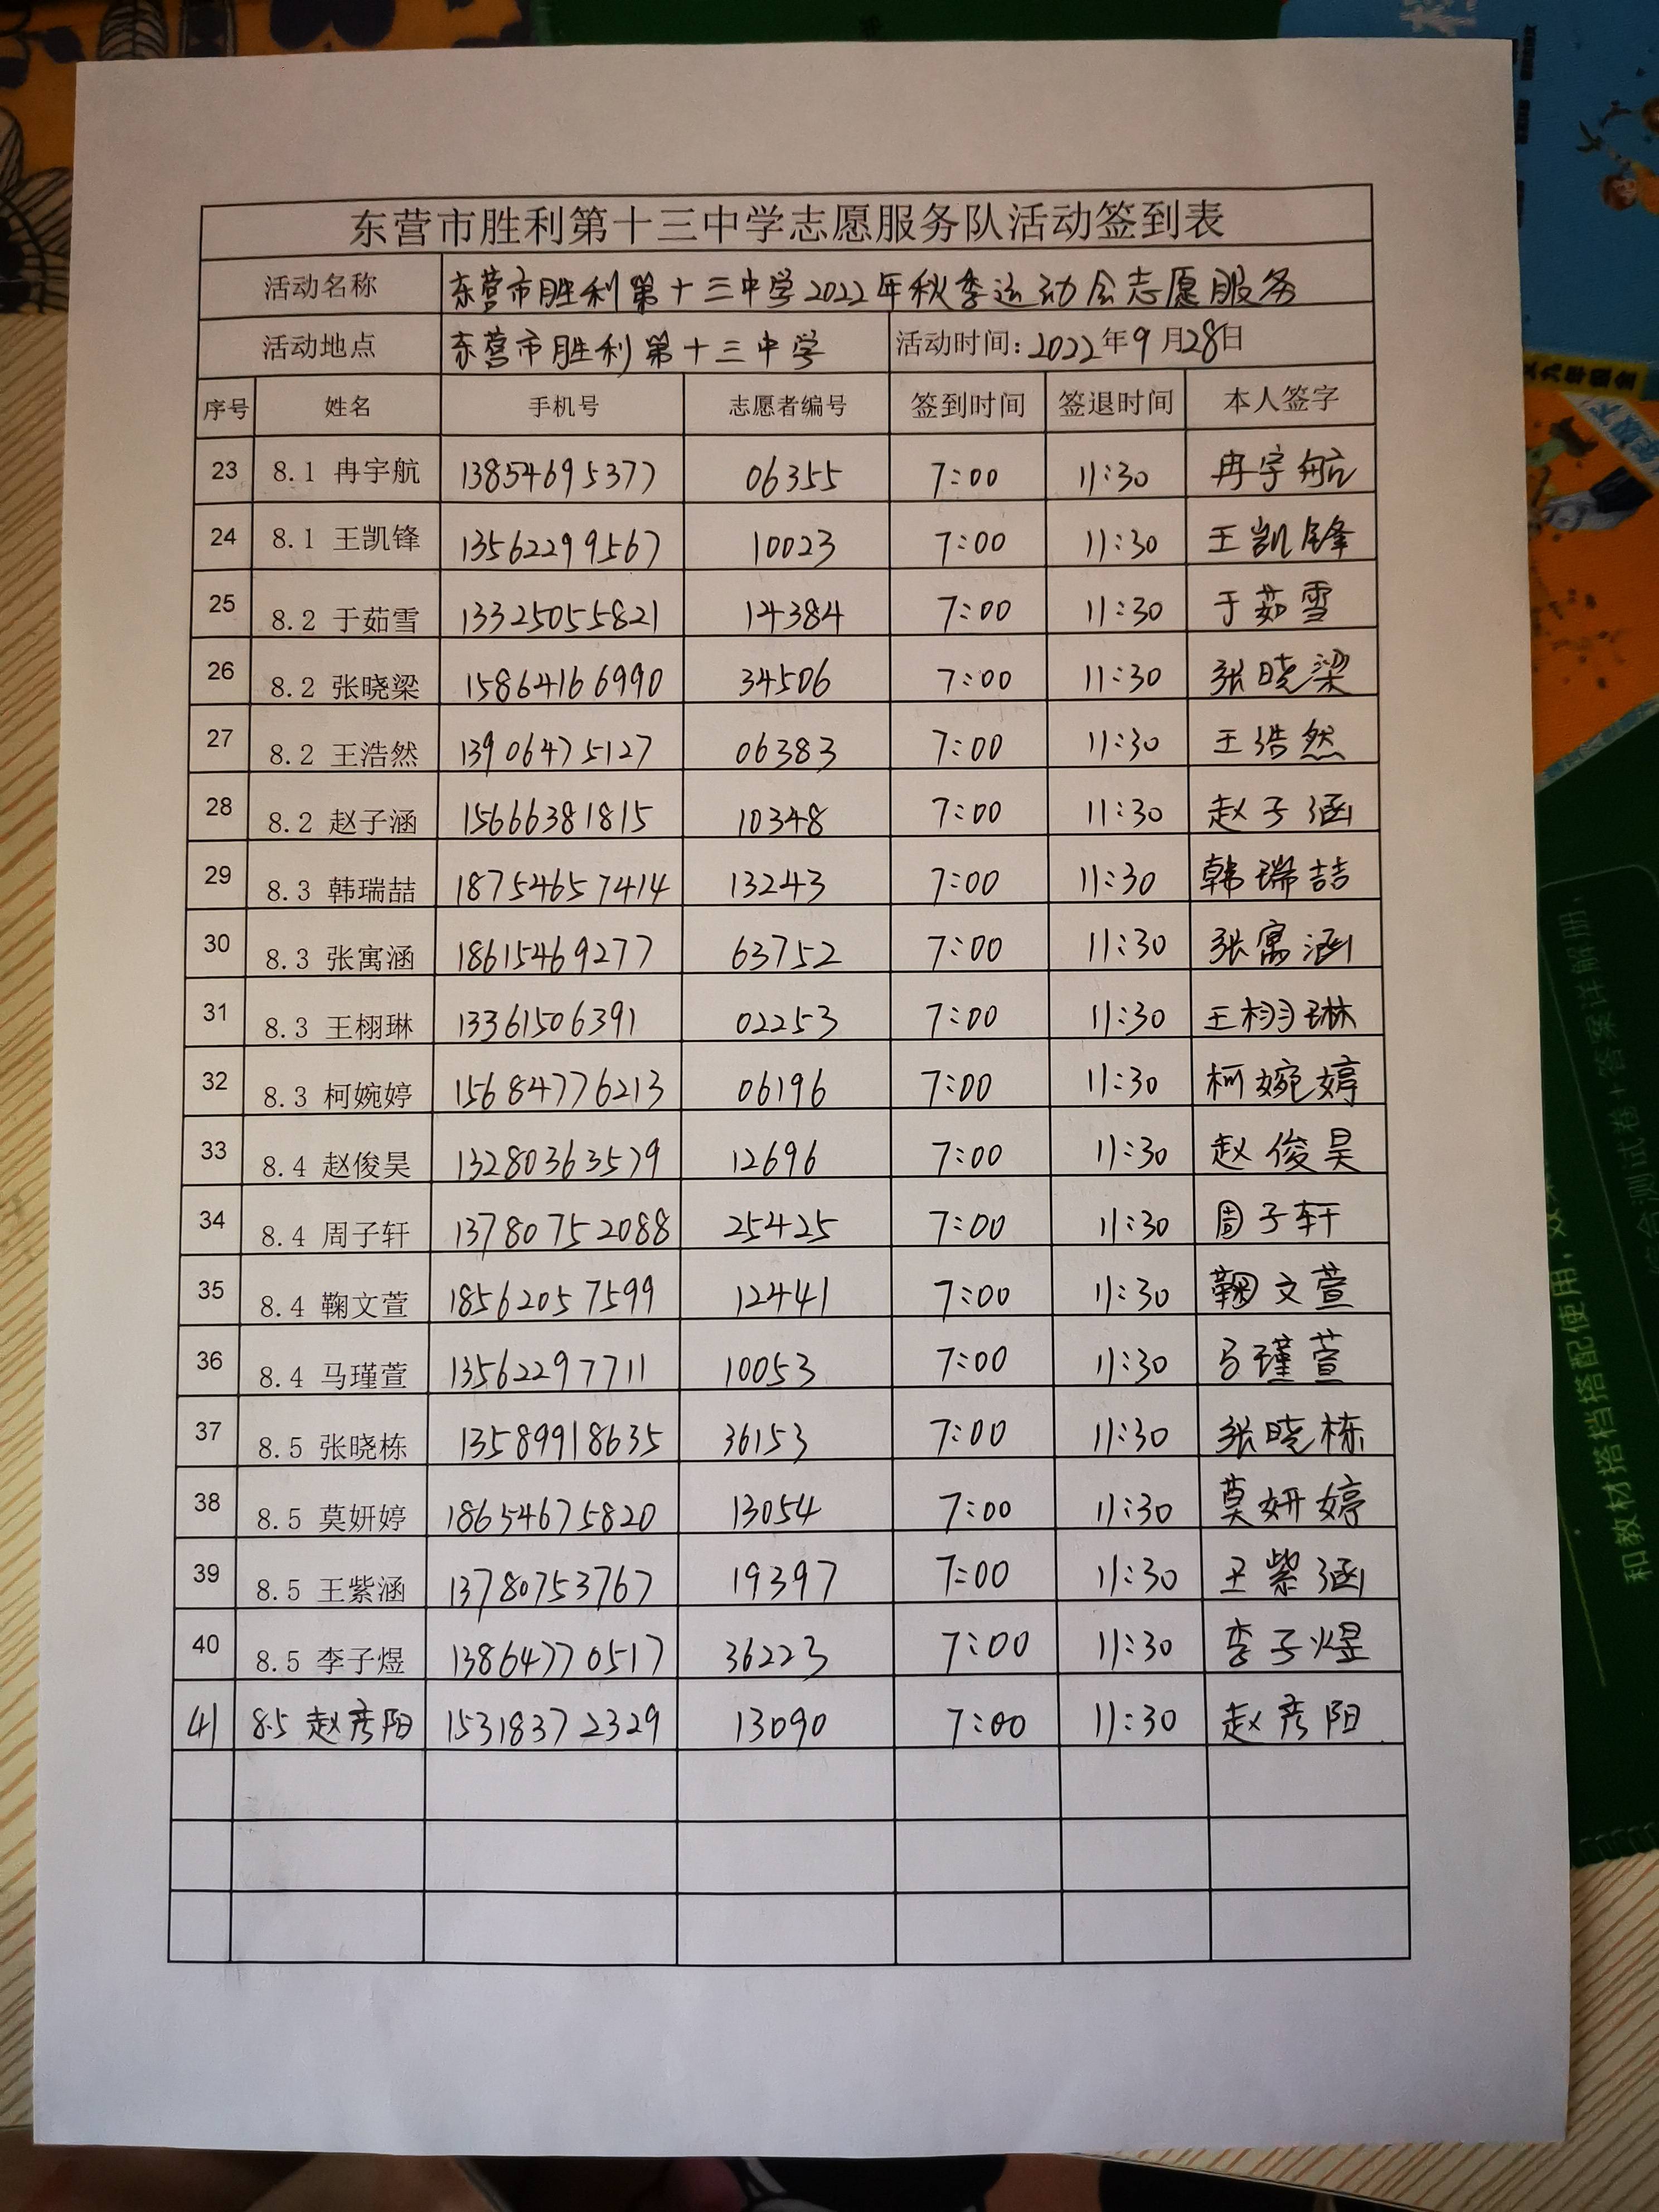 东营市胜利第十三中学志愿服务队活动签到表
活动名称 东营市胜利第十三中学2022年秋季运动会志愿服务
活动地点 东营市胜利第十三中学 活动时间:2022年9月28日
序号 姓名 手机号 志愿者编号 签到时间 签退时间 本人签字
23 8.1 冉宇航 13854695377 06355 7:00 11:30 冉宇航
24 8.1 王凯锋 13562299567 10023 7:00 11:30 王凯锋
25 8.2 于茹雪 13325055821 14384 7:00 11:30 于茹雪
26 8.2 张晓梁 15864166990 34506 7:00 11:30 张晓梁
27 8.2 王浩然 13906475127 06383 7:00 11:30 王浩然
28 8.2 赵子涵 15666381815 10348 7:00 11:30 赵子涵
29 8.3 韩瑞喆 18754657414 13243 7:00 11:30 韩瑞喆
30 8.3 张寓涵 18615469277 63752 7:00 11:30 张寓涵
31 8.3 王栩琳 13361506391 02253 7:00 11:30 王栩琳
32 8.3 柯婉婷 15684776213 06196 7:00 11:30 柯婉婷
33 8.4 赵俊昊 13280363579 12696 7:00 11:30 赵俊昊
34 8.4 周子轩 13780752088 25425 7:00 11:30 周子轩
35 8.4 鞠文萱 18562057599 12441 7:00 11:30 鞠文萱
36 8.4 马瑾萱 13562297711 10053 7:00 11:30 马瑾萱
37 8.5 张晓栋 13589918635 36153 7:00 11:30 张晓栋
38 8.5 莫妍婷 18654675820 13054 7:00 11:30 莫妍婷
39 8.5 王紫涵 13780753767 19397 7:00 11:30 王紫涵
40 8.5 李子煜 13864770517 36223 7:00 11:30 李子煜
41 8.5 赵彦阳 15318372329 13090 7:00 11:30 赵彦阳
和教材搭档搭配使用,